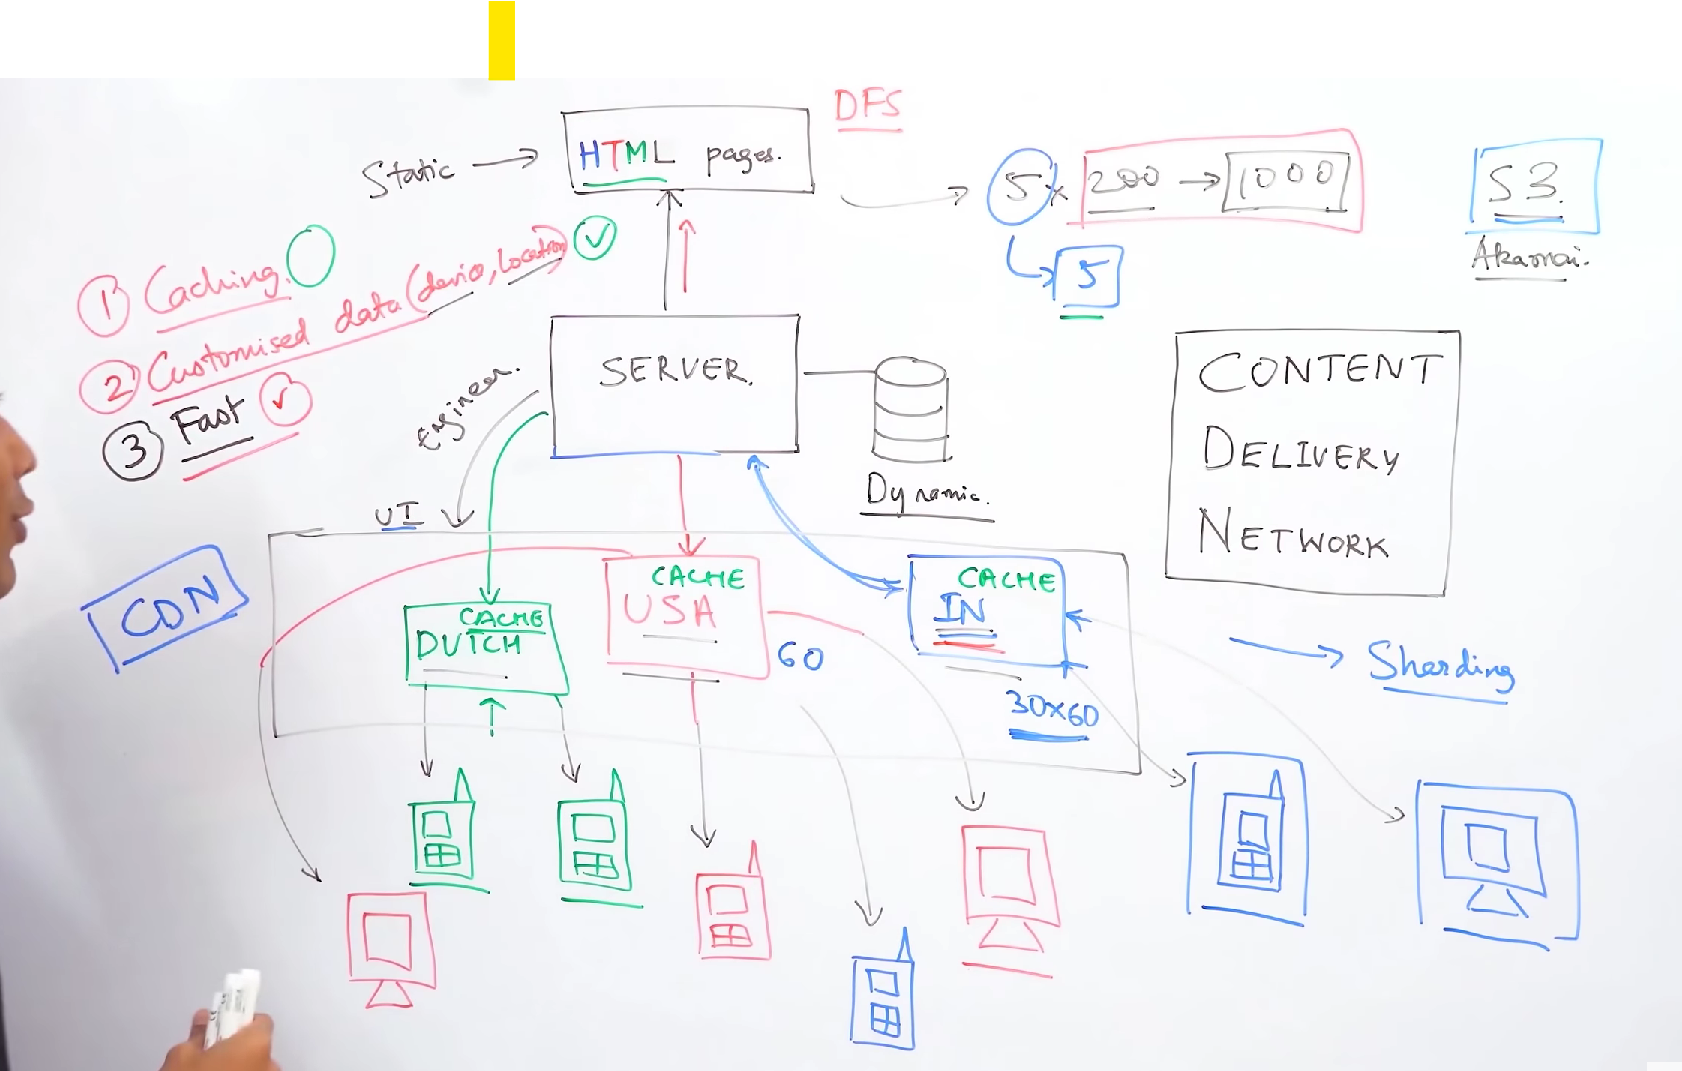 DFS
Static
HTML pages.
5 x 200 → 1000
5
S3.
Akamai.
1 Caching.
2 Customised data (device, location)
3 Fast
SERVER.
Engineer.
Dynamic.
UI
CONTENT
DELIVERY
NETWORK
CDN
CACHE
DUTCH
CACHE
USA
60
CACHE
IN
30x60
Sharding